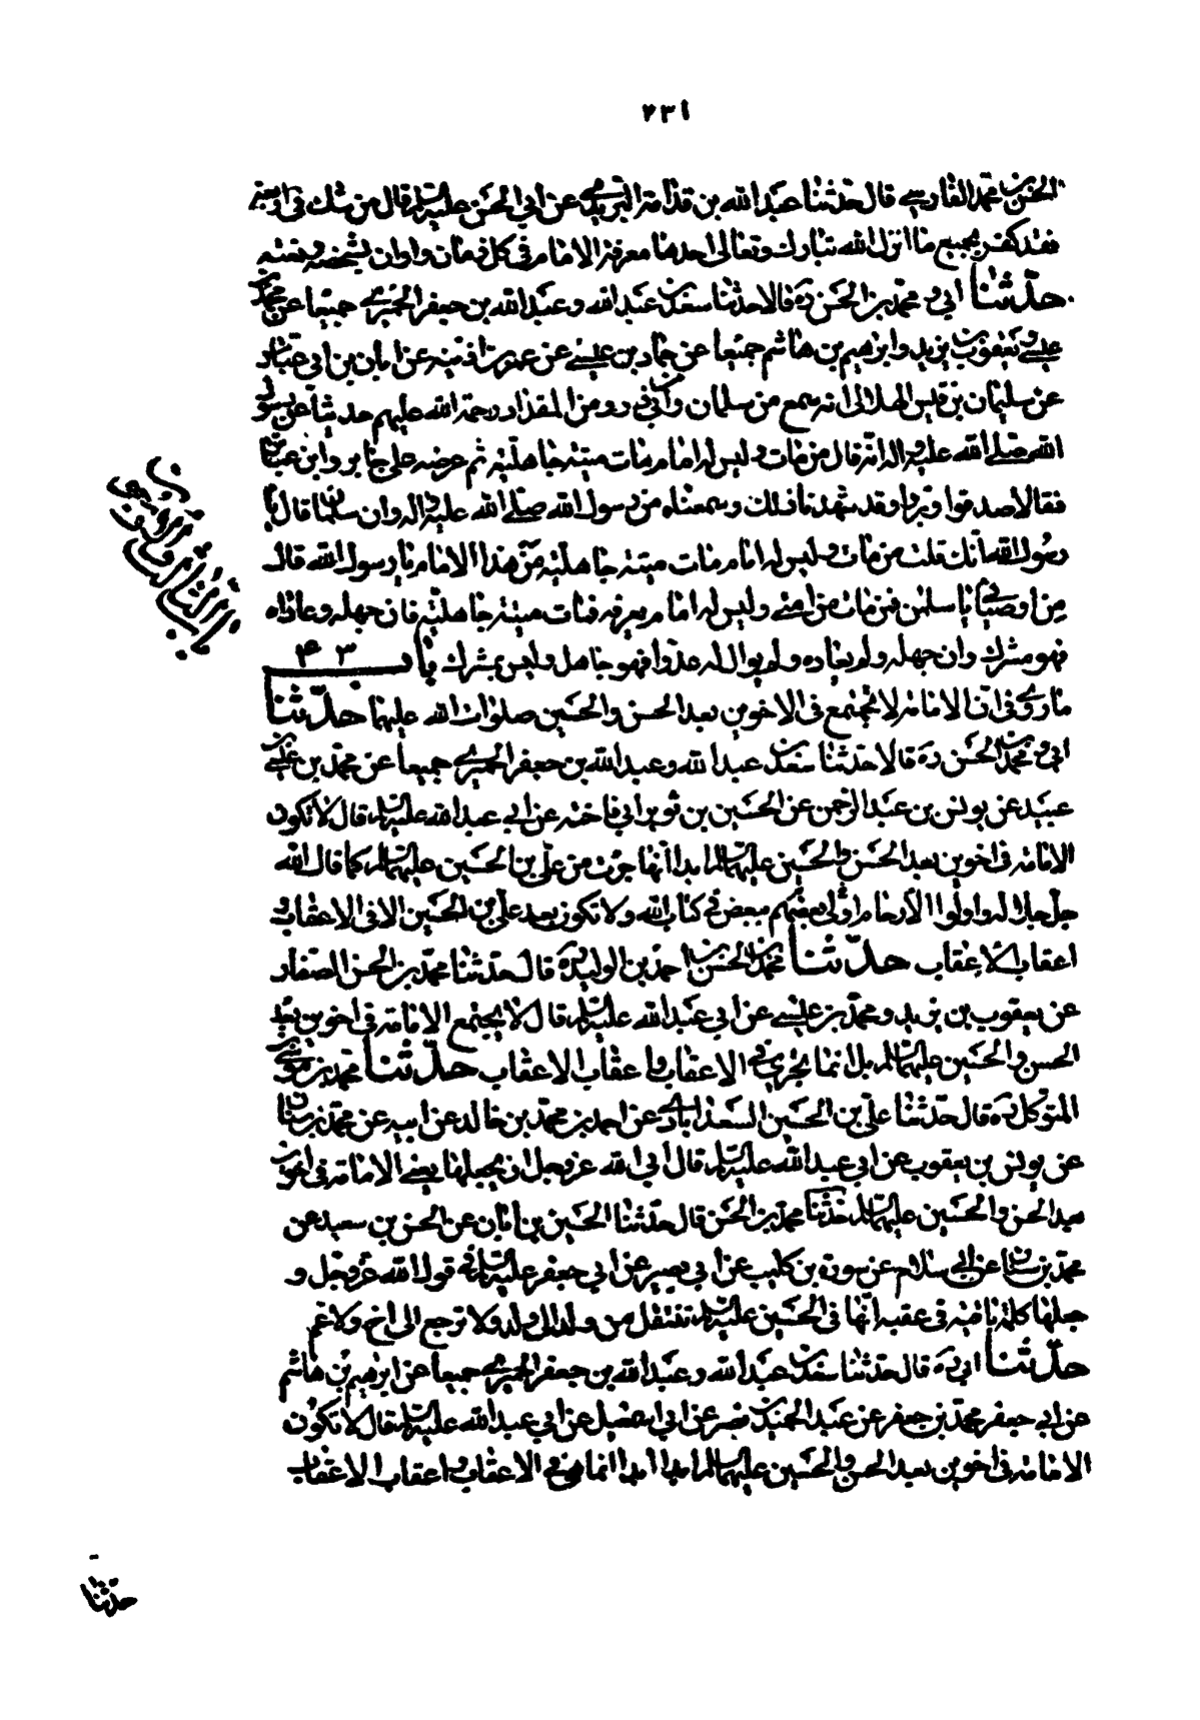 ٢٣١
الحسن بن محمد الفارسي قال حدثنا عبد الله بن قدامة الترمذي عن ابي الحسن عليه السلام قال من شك في اربعة
فقد كفر بجميع ما انزل الله تبارك وتعالى احدها معرفة الامام في كل زمان واوان بشخصه ونعته
حدثنا ابي ومحمد بن الحسن ره قالا حدثنا سعد بن عبد الله وعبد الله بن جعفر الحميري جميعا عن محمد بن
عيسى ويعقوب بن يزيد وابرهيم بن هاشم جميعا عن حماد بن عيسى عن عمر بن اذينه عن ابان بن ابي عياش
عن سليمان بن قيس الهلالي انه سمع من سلمان وابي ذر ومن المقداد رحمة الله عليهم حديثا عن رسول
الله صلى الله عليه واله انه قال من مات وليس له امام مات ميتة جاهلية ثم عرضه على جابر وابن عباس
فقالا صدقوا وبروا وقد شهدنا ذلك وسمعناه من رسول الله صلى الله عليه واله وان سلمان قال يا
رسول الله انك قلت من مات وليس له امام مات ميتة جاهلية من هذا الامام يا رسول الله قال
من اوصيائي يا سلمان فمن مات من امتي وليس له امام يعرفه فمات ميتة جاهلية فان جهله وعاداه
فهو مشرك وان جهله ولم يعاده ولم يوال له عدوا فهو جاهل وليس بمشرك باب ٤٣
ما روي في ان الامامة لا تجتمع في الاخوين بعد الحسن والحسين صلوات الله عليهما حدثنا
ابي ومحمد بن الحسن ره قالا حدثنا سعد بن عبد الله وعبد الله بن جعفر الحميري جميعا عن محمد بن عيسى بن
عبيد عن يونس بن عبد الرحمن عن الحسين بن ثوير ابي فاخته عن ابي عبد الله عليه السلام قال لا تكون
الامامة في اخوين بعد الحسن والحسين عليهما السلام ابدا انها جرت من علي بن الحسين عليهما السلام كما قال الله
جل جلاله واولوا الارحام بعضهم اولى ببعض في كتاب الله ولا تكون بعد علي بن الحسين الا في الاعقاب و
اعقاب الاعقاب حدثنا محمد بن الحسن بن احمد بن الوليد ره قال حدثنا محمد بن الحسن الصفار
عن يعقوب بن يزيد ومحمد بن عيسى عن ابي عبد الله عليه السلام قال لا يجتمع الامامة في اخوين بعد
الحسن والحسين عليهما السلام بل انما تجري في الاعقاب واعقاب الاعقاب حدثنا محمد بن موسى بن
المتوكل ره قال حدثنا علي بن الحسين السعد ابادي عن احمد بن محمد بن خالد عن ابيه عن محمد بن سنان
عن يونس بن يعقوب عن ابي عبد الله عليه السلام قال ابى الله عز وجل ان يجعلها يعني الامامة في اخوين
بعد الحسن والحسين عليهما السلام حدثنا محمد بن الحسن قال حدثنا الحسين بن ابان عن الحسن بن سعيد عن
محمد بن سنان عن ابي سلام عن سورة بن كليب عن ابي بصير عن ابي جعفر عليه السلام في قول الله عز وجل و
جعلها كلمة باقية في عقبه انها في الحسين عليه السلام تنتقل من ولد الى ولد ولا ترجع الى اخ ولا عم
حدثنا ابي ره قال حدثنا سعد بن عبد الله وعبد الله بن جعفر الحميري جميعا عن ابرهيم بن هاشم
عن ابي جعفر محمد بن جعفر عن عبد الحميد بن نصر عن ابي اسمعيل عن ابي عبد الله عليه السلام قال لا تكون
الامامة في اخوين بعد الحسن والحسين عليهما السلام ابدا ابدا انما هي في الاعقاب واعقاب الاعقاب
حدثنا